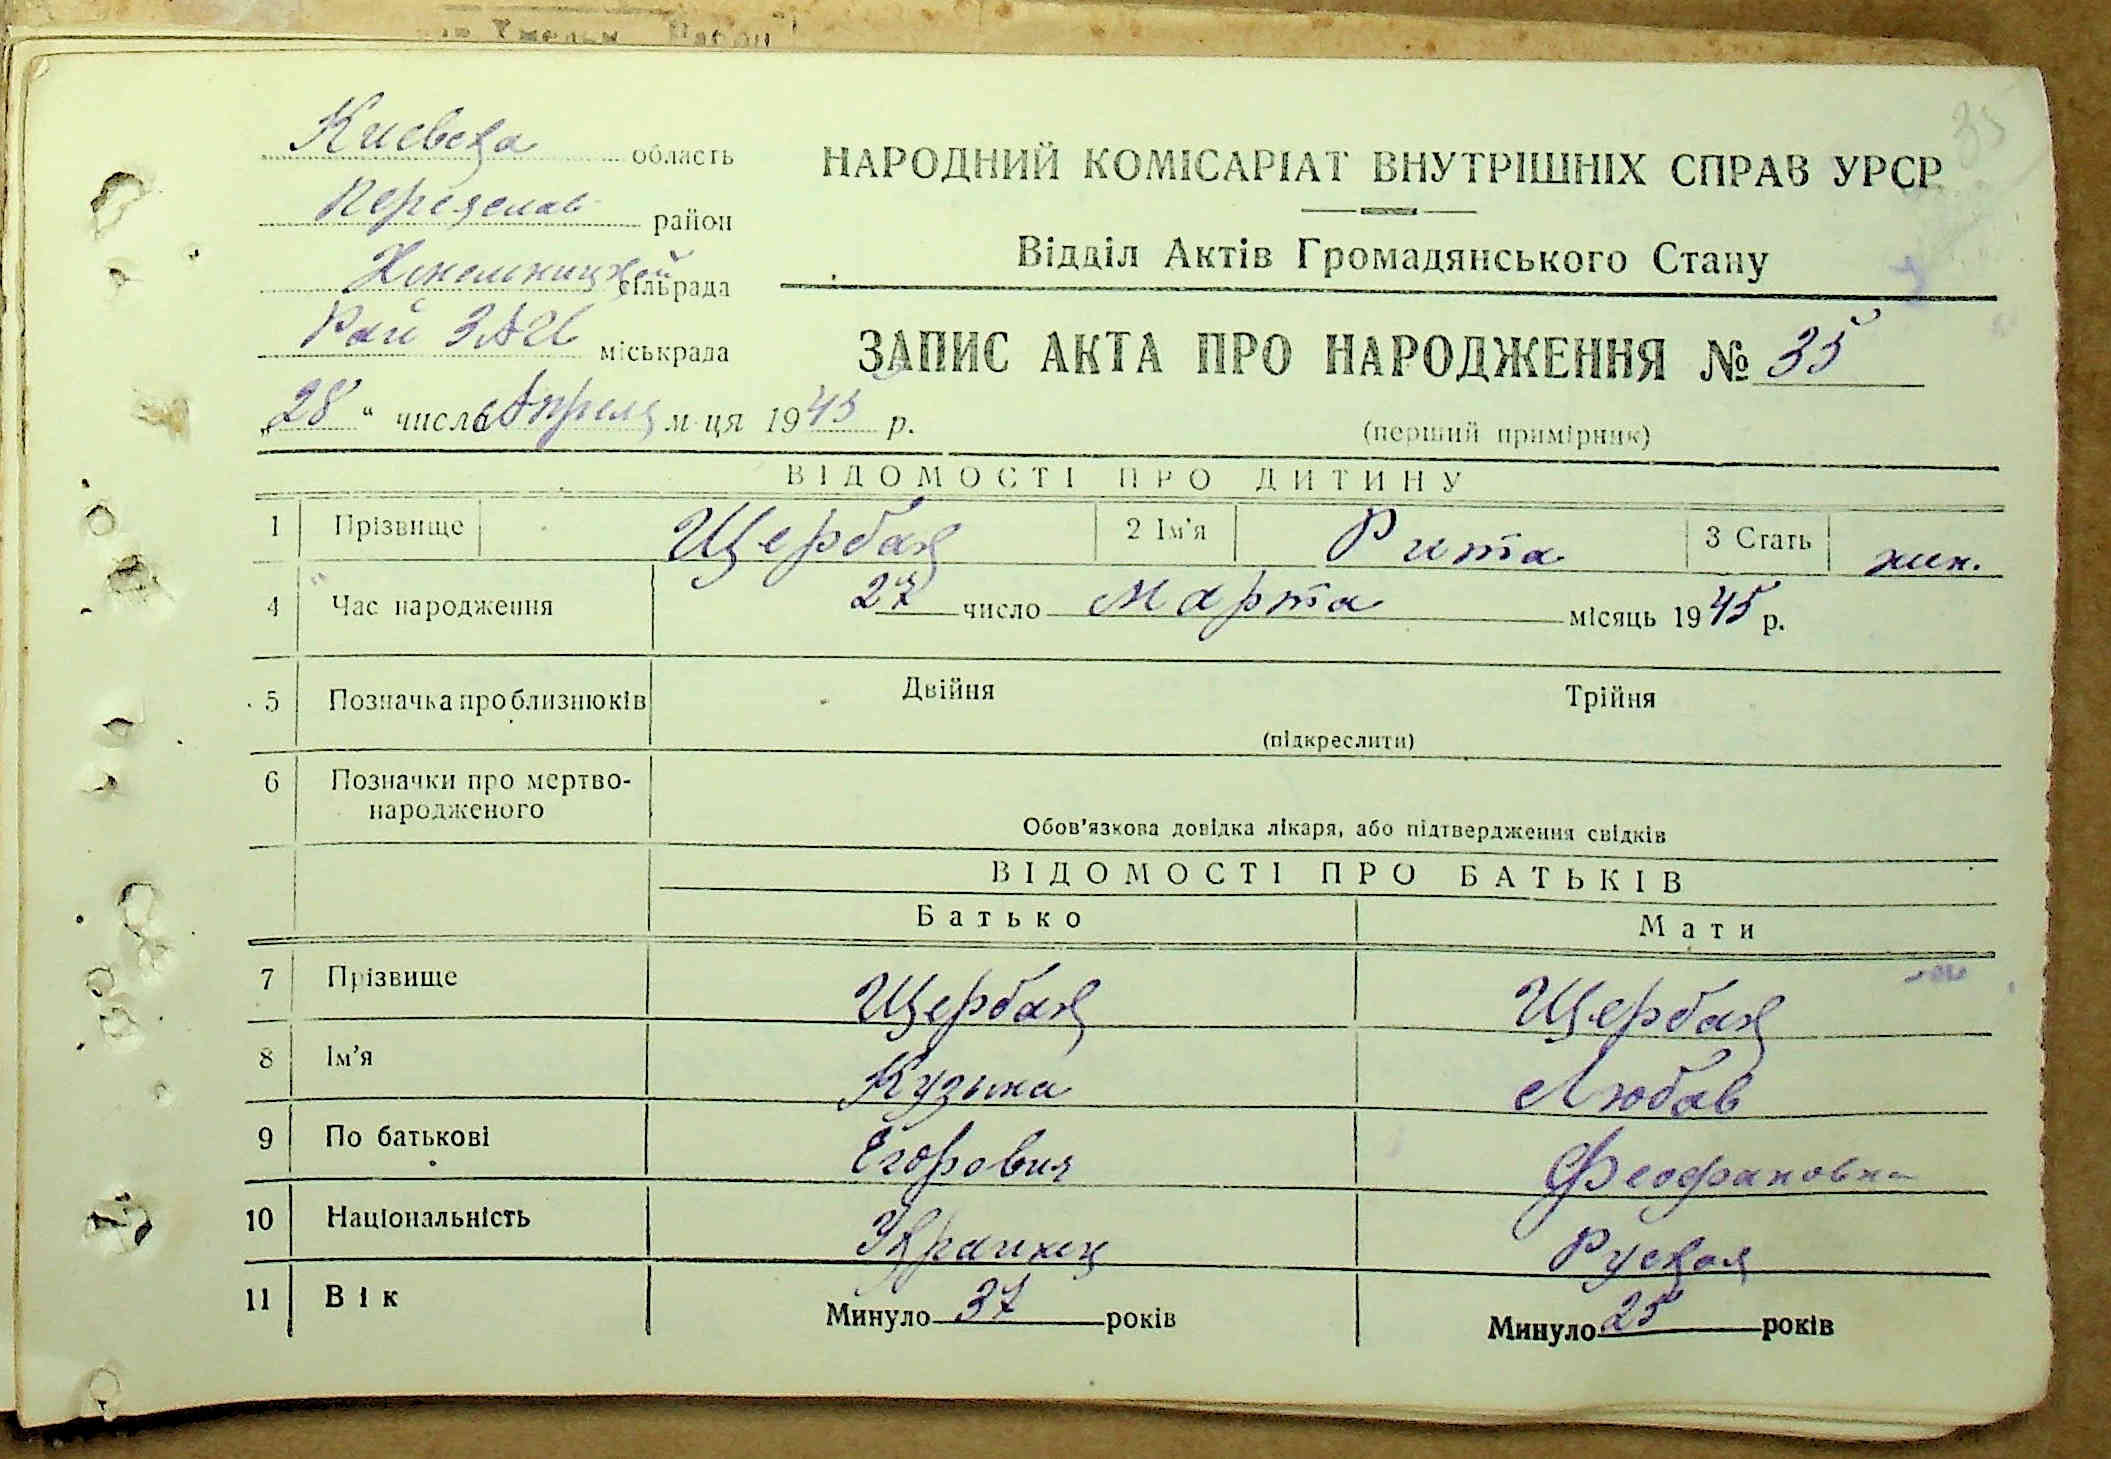 Киевска область
Переяслав район
Хмельницкий сільрада
Рай ЗАГС міськрада
НАРОДНИЙ КОМІСАРІАТ ВНУТРІШНІХ СПРАВ УРСР
35
Відділ Актів Громадянського Стану
ЗАПИС АКТА ПРО НАРОДЖЕННЯ № 35
„28“ числа Апреля м-ця 1945 р.
(перший примірник)
ВІДОМОСТІ ПРО ДИТИНУ
1 Прізвище Щербак 2 Ім'я Рита 3 Стать жен.
4 Час народження 27 число Марта місяць 1945 р.
5 Позначка про близнюків Двійня Трійня
(підкреслити)
6 Позначки про мертво-
народженого
Обов'язкова довідка лікаря, або підтвердження свідків
ВІДОМОСТІ ПРО БАТЬКІВ
Батько Мати
7 Прізвище Щербак Щербак
8 Ім'я Кузьма Любов
9 По батькові Егорович Феофановна
10 Національність Украинец Руская
11 Вік Минуло 37 років Минуло 25 років